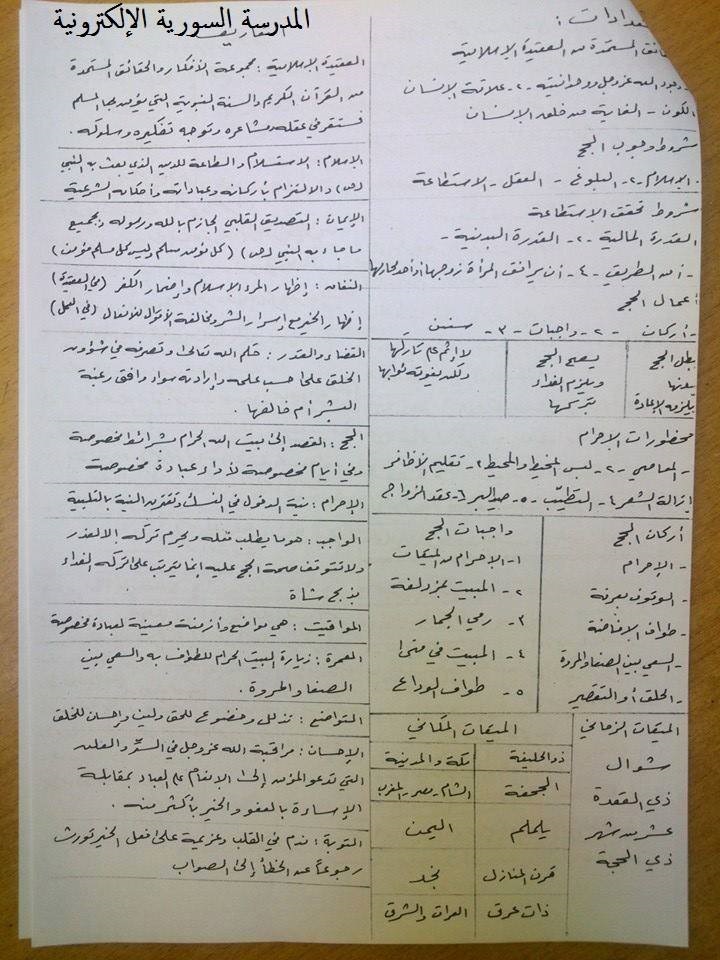 المدرسة السورية الإلكترونية
ـعدادات :
ـائق المستمدة من العقيدة الإسلامية
وجود الله عز وجل ووحدانيته -٢- علاقة الإنسان
الكون - الغاية من خلق الإنسان
شروط وجوب الحج
- الإسلام -٢- البلوغ - العقل - الاستطاعة
شروط تحقق الاستطاعة
القدرة المالية -٢- القدرة البدنية -
- أمن الطريق -٤- أن يرافق المرأة زوجها أو أحد محارمها
أعمال الحج
- أركان -٢- واجبات -٣- سنن
يبطل الحج بدونها يلزمه الإعادة
يصح الحج ويلزم الفداء بتركها
لا إثم على تاركها ولكن يفوته ثوابها
محظورات الإحرام
- المعاصي -٢- لبس المخيط والمحيط ٣- تقليم الأظافر
إزالة الشعر ٤- التطيّب -٥- صيد البر ٦- عقد الزواج
أركان الحج
- الإحرام
- الوقوف بعرفة
- طواف الإفاضة
- السعي بين الصفا والمروة
- الحلق أو التقصير
واجبات الحج
١- الإحرام من الميقات
٢- المبيت بمزدلفة
٣- رمي الجمار
٤- المبيت في منى
٥- طواف الوداع
الميقات الزماني
شوال
ذي القعدة
عشر من شهر
ذي الحجة
الميقات المكاني
ذو الحليفة مكة والمدينة
الجحفة الشام - مصر - المغرب
يلملم اليمن
قرن المنازل نجد
ذات عرق العراق والشرق
التعاريف
العقيدة الإسلامية : مجموعة الأفكار والحقائق المستمدة
من القرآن الكريم والسنة النبوية التي يؤمن بها المسلم
فتستقر في عقله ومشاعره وتوجه تفكيره وسلوكه .
الإسلام : الاستسلام والطاعة للدين الذي بعث به النبي
(ص) والالتزام بأركانه وعباداته وأحكامه الشرعية
الإيمان : التصديق القلبي الجازم بالله ورسوله وبجميع
ما جاء به النبي (ص) (كل مؤمن مسلم وليس كل مسلم مؤمن)
النفاق : إظهار المرء الإسلام وإضمار الكفر (في العقيدة)
إظهار الخير مع إسرار الشر ومخالفة الأقوال للأفعال (في العمل)
القضاء والقدر : حكم الله تعالى وتصرفه في شؤون
الخلق على حسب علمه وإرادته سواء وافق رغبة
البشر أم خالفها .
الحج : القصد إلى بيت الله الحرام بشرائط مخصوصة
وفي أيام مخصوصة لأداء عبادة مخصوصة
الإحرام : نية الدخول في النسك وتقترن النية بالتلبية
الواجب : هو ما يطلب فعله ويحرم تركه إلا لعذر
ولا تتوقف صحة الحج عليه إنما يترتب على تركه الفداء
بذبح شاة
المواقيت : هي مواضع وأزمنة معينة لعبادة مخصوصة
العمرة : زيارة البيت الحرام للطواف به والسعي بين
الصفا والمروة .
التواضع : تذلل وخضوع للحق ولين وإحسان للخلق
الإحسان : مراقبة الله عز وجل في السرّ والعلن
التي تدعو المؤمن إلى الإنعام على العباد بمقابلة
الإساءة بالعفو والخير بأكثر منه .
التوبة : ندم في القلب وعزيمة على فعل الخير تورث
رجوعاً عن الخطأ إلى الصواب